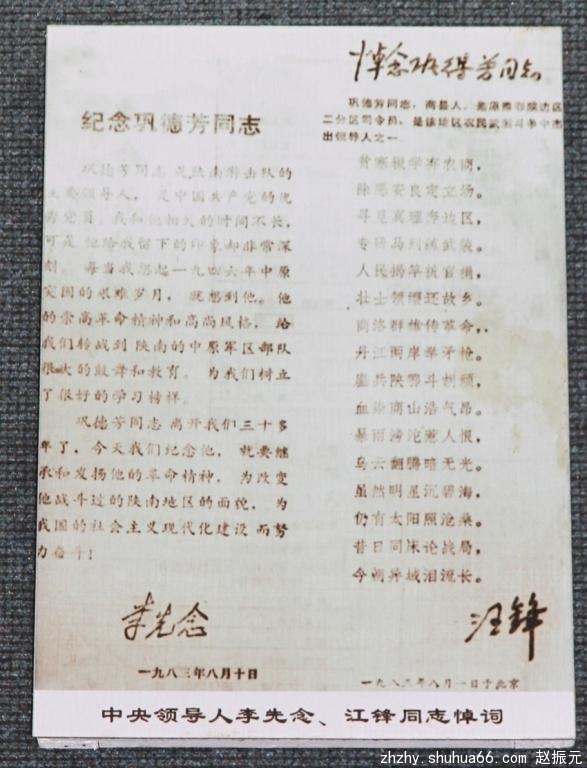 纪念巩德芳同志
巩德芳同志是陕南游击队的
主要领导人，是中国共产党的优
秀党员。我和他相处的时间不长，
可是他给我留下的印象却非常深
刻。每当我想起一九四六年中原
突围的艰难岁月，就想到他。他
的崇高革命精神和高尚风格，给
我们转战到陕南的中原军区部队
很大的鼓舞和教育。为我们树立
了很好的学习榜样。
巩德芳同志离开我们三十多
年了，今天我们纪念他，就要继
承和发扬他的革命精神，为改变
他战斗过的陕南地区的面貌，为
我国的社会主义现代化建设而努
力奋斗！
李先念
一九八三年八月十日
悼念巩德芳同志
巩德芳同志，商县人，是原豫鄂陕边区
二分区司令员，是该地区农民武装斗争中杰
出领导人之一
贫寒辍学弃农商，
除恶安良定立场。
寻见真理奔边区，
专研马列练武装。
人民揭竿抗官绅，
壮士领缨还故乡。
商洛群雄传革命，
丹江两岸举矛枪。
鏖兵陕鄂斗胡顽，
血染商山浩气昂。
暴雨滂沱惹人恨，
乌云翻腾暗无光。
虽然明星沉碧海，
仍有太阳照沧桑。
昔日同床论战局，
今朝异域泪流长。
汪锋
一九八三年八月一日于北京
中央领导人李先念、江锋同志悼词
zhzhy.shuhua66.com 赵振元